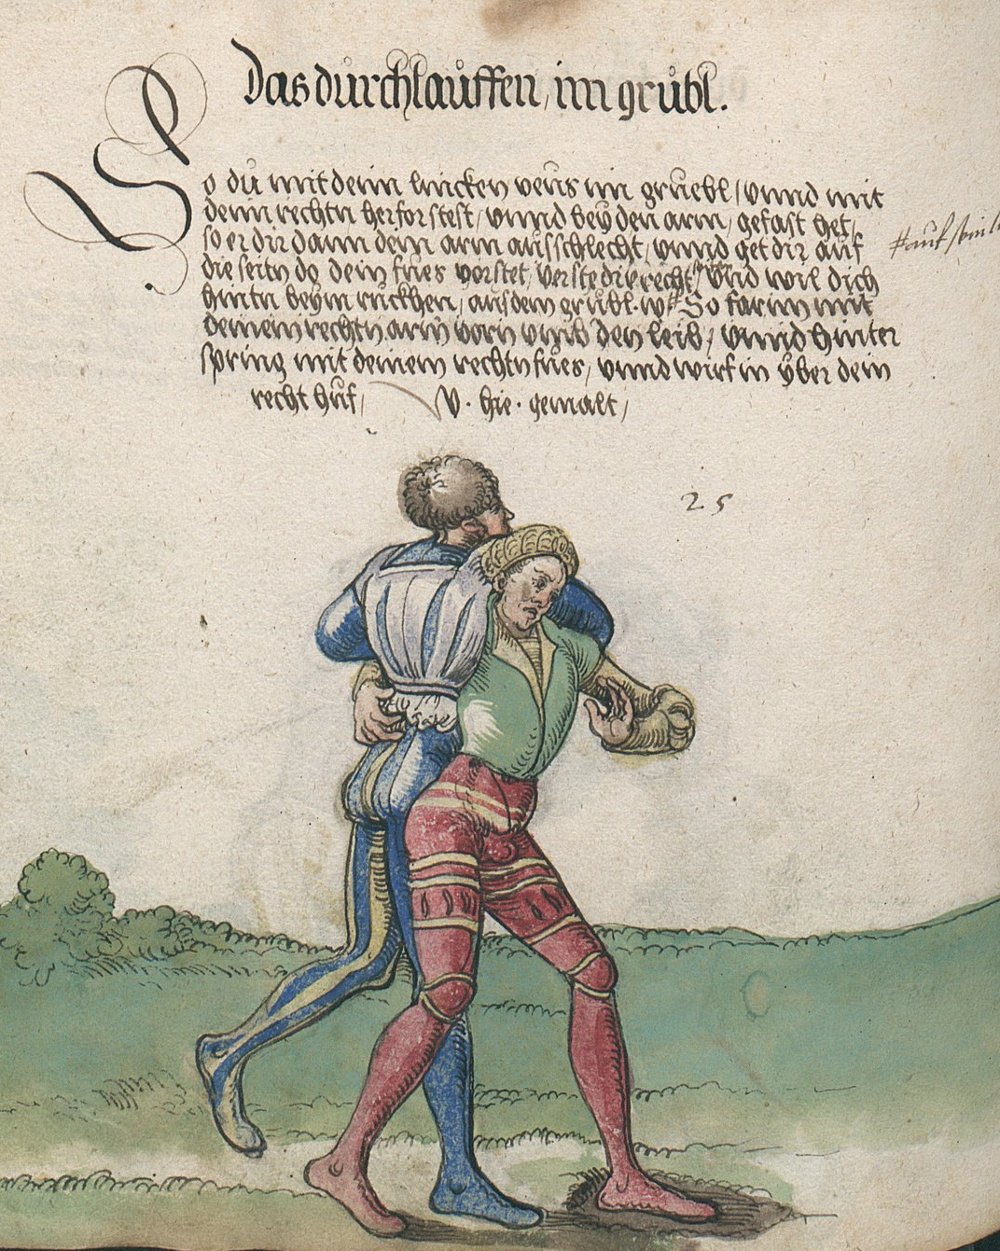 Das durchlauffen, im grubl.
So du mit deim lincken veus im gruebl / vnnd mit
deim rechtn herfor stest / vnnd bey den arm, gefast het,
so er dir dann dem arm ausschlecht, vnnd get dir auf
die seitn do dein fues vorstet, verste die recht / Vnd wil dich
hintn beym ruckhen, aus dem grubl. w So far im mit
deinem rechtn arm vorn vmb den leib, vnnd hinter
spring mit deinem rechtn fues, vnnd wirf in yber dein
recht huf, V. hie. gemalt,
auf
25